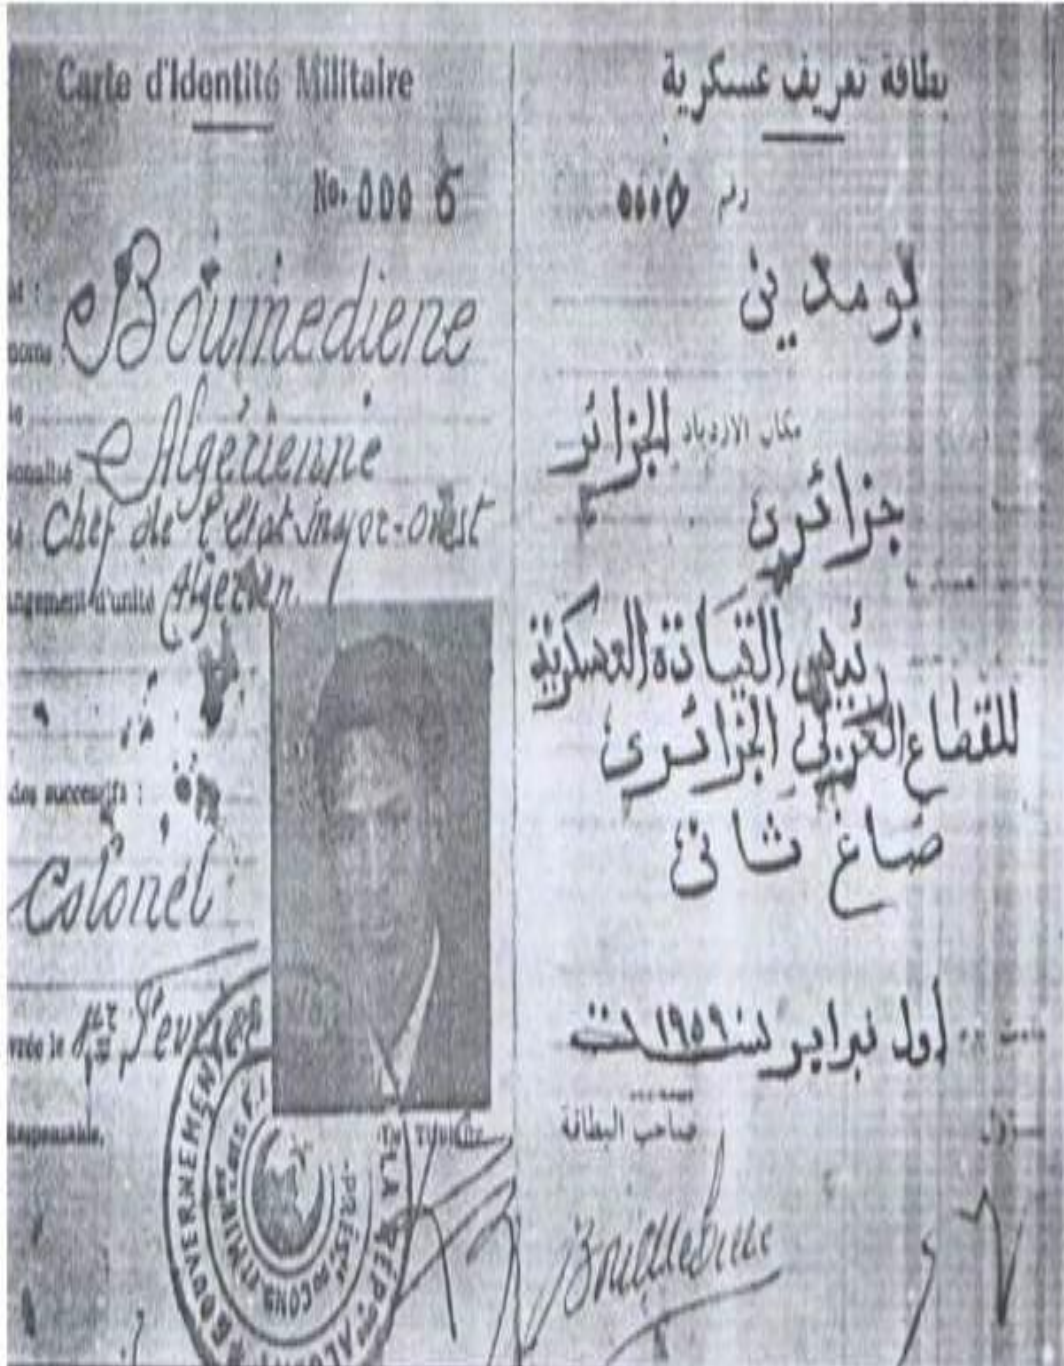 Carte d'Identité Militaire
No. 000 5
Boumediene
Algérienne
Chef de l'Etat major-ouest
Algérien
des successifs :
Colonel
1er Février
esponsable,
Le Titulaire
GOUVERNEMENT
بطاقة تعريف عسكرية
رقم ٠٠٠٥
بومدين
مكان الازدياد الجزائر
جزائري
رئيس القيادة العسكرية
للقطاع الغربي الجزائري
صاغ ثاني
أول فبراير سنة ١٩٥٩
صاحب البطاقة
Boumediene